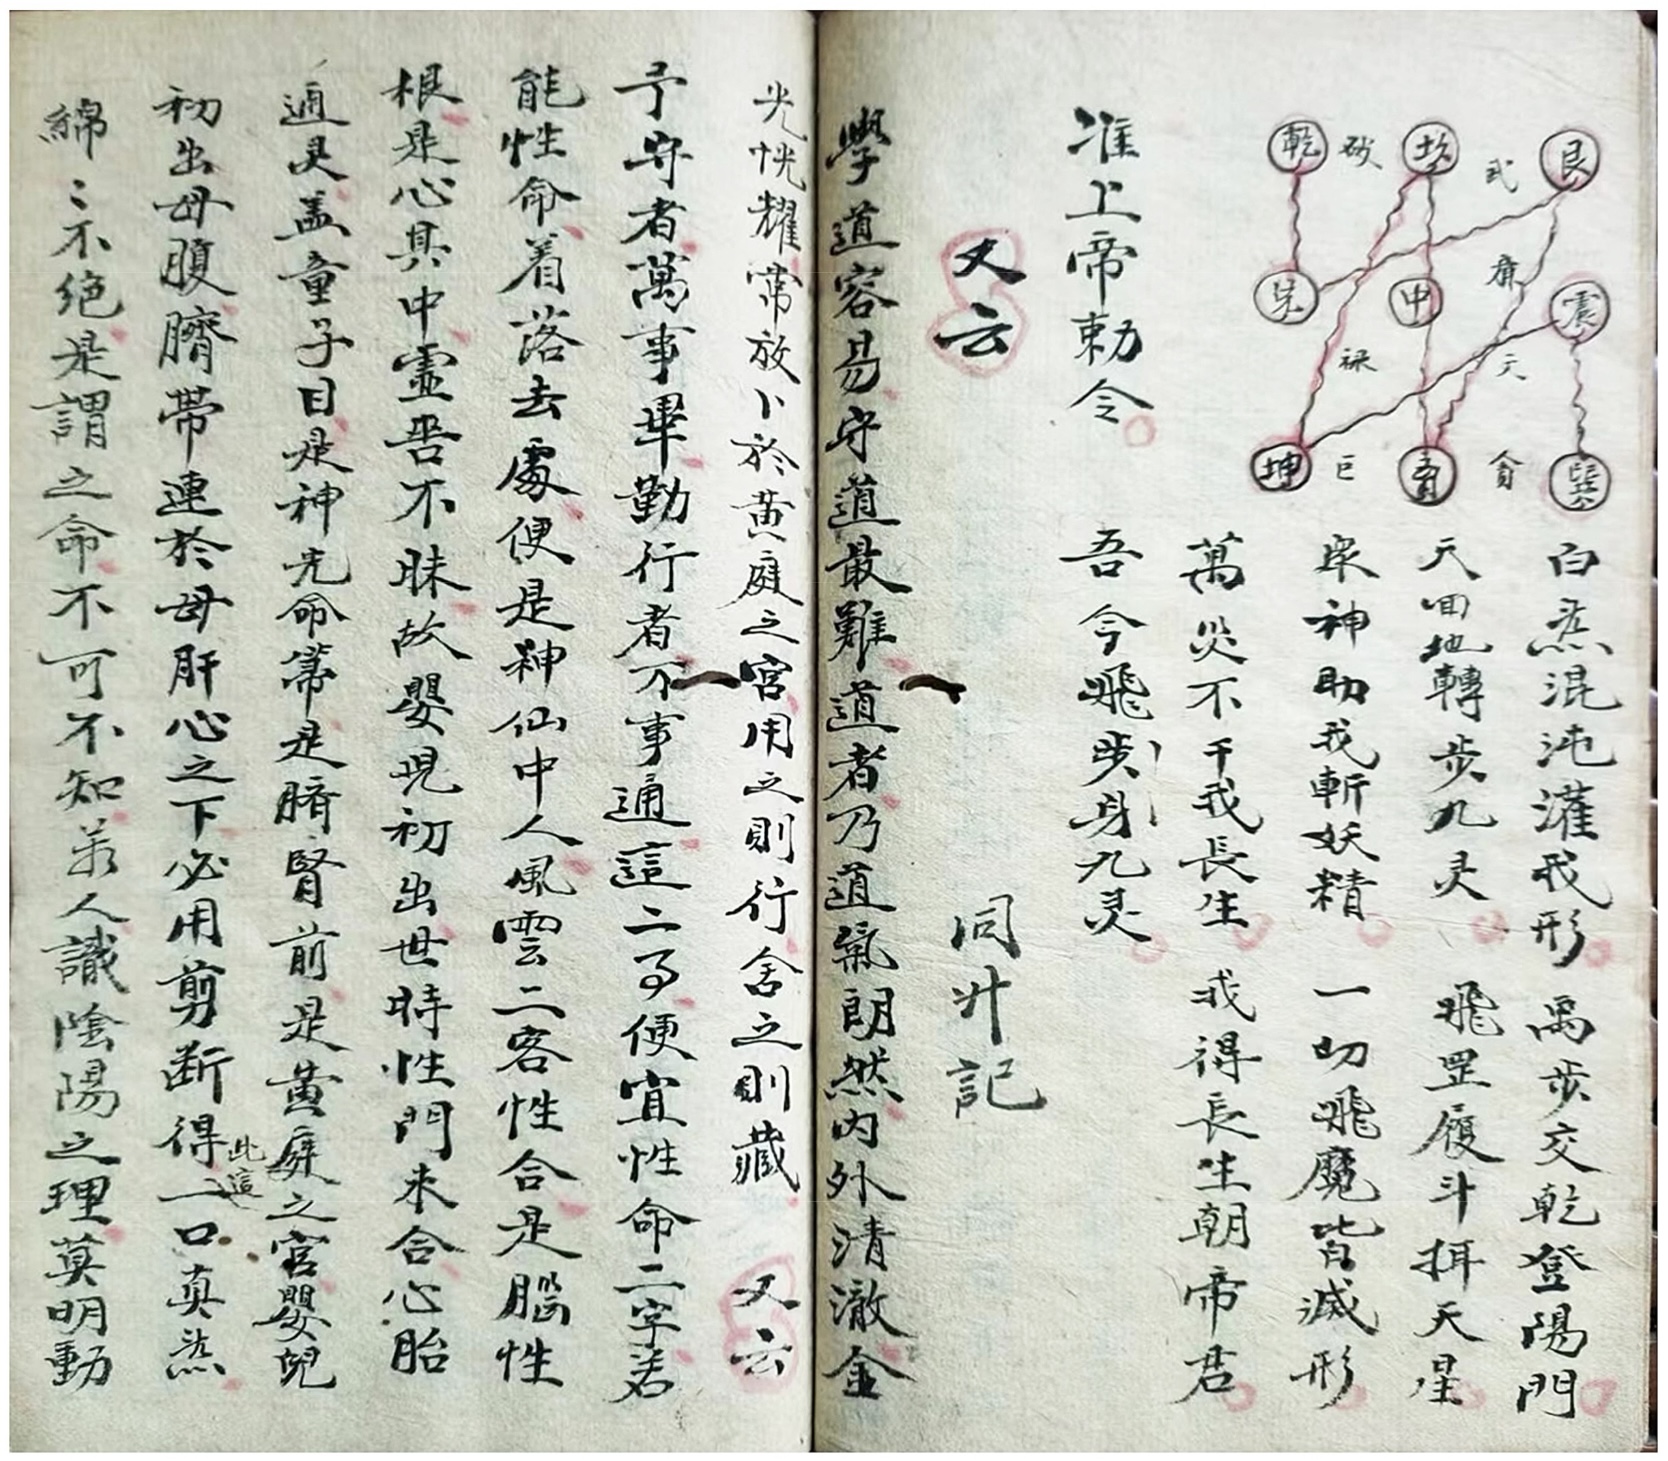 艮 坎 乾
武 破
震 中 兌
廉
天 祿
巽 離 坤
貪 巨
白炁混沌灌我形 禹步交乾登陽門
天囬地轉步九灵 飛罡履斗揖天星
眾神助我斬妖精 一切飛魔皆滅形
萬災不干我長生 我得長生朝帝君
吾今飛步身九灵
准上帝勅令
又云 同升記
學道容易守道最難道者乃道氣朗然内外清澈金
光恍耀常放卜於黄庭之宮用之則行舍之則藏 又云
予守者萬事畢勤行者不事通這二的便宜性命二字若
能性命着落去處便是神仙中人風雲二客性合是腦性
根是心其中靈吾不昧故嬰児初出世時性門未合心胎
通灵盖童子目是神光命蒂是臍腎前是黄庭之宮嬰児
初出母腹臍帶連於母肝心之下必用剪断得一口真炁
此這
綿〻不绝是謂之命不可不知若人識陰陽之理莫明動